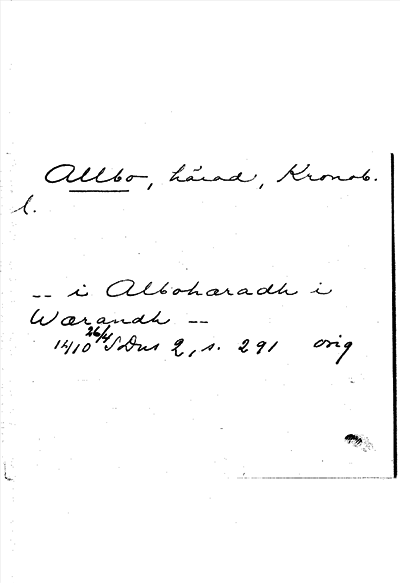 Allbo, härad, Kronob.
l.
-- i Albohæradh i
Wærandh --
1410 26/4 SDns 2, s. 291 orig